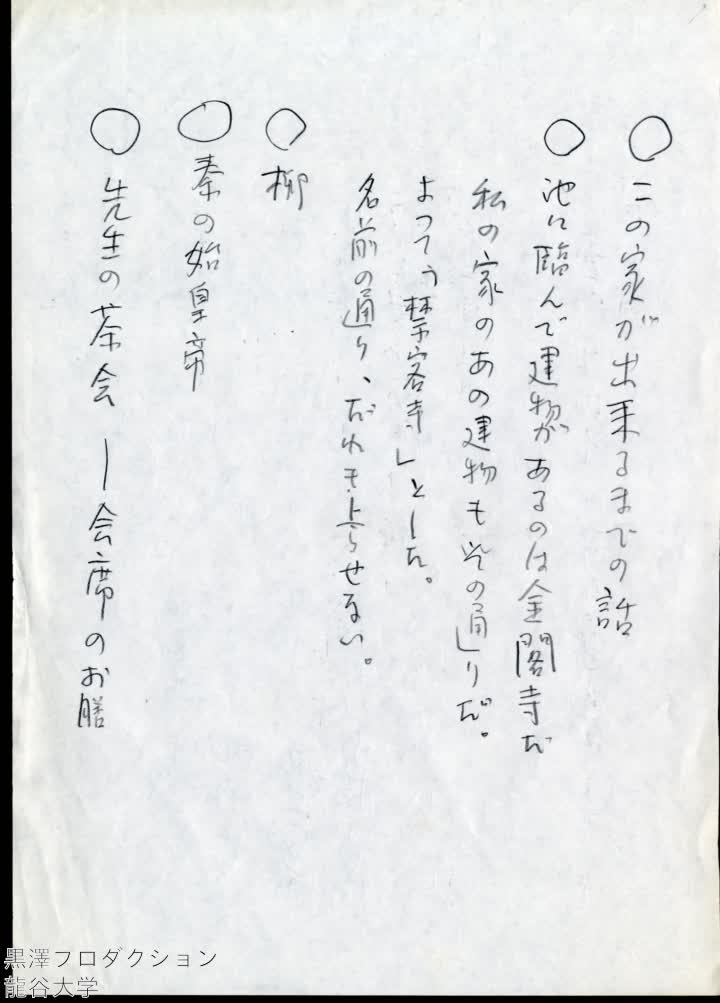 ○ この家が出来るまでの話
○ 池に臨んで建物があるのは金閣寺だ
私の家のあの建物もその通りだ。
よつて「禁客寺」とした。
名前の通り、だれも上らせない。
○ 柳
○ 秦の始皇帝
○ 先生の茶会 ー会席のお膳
黒澤プロダクション
龍谷大学